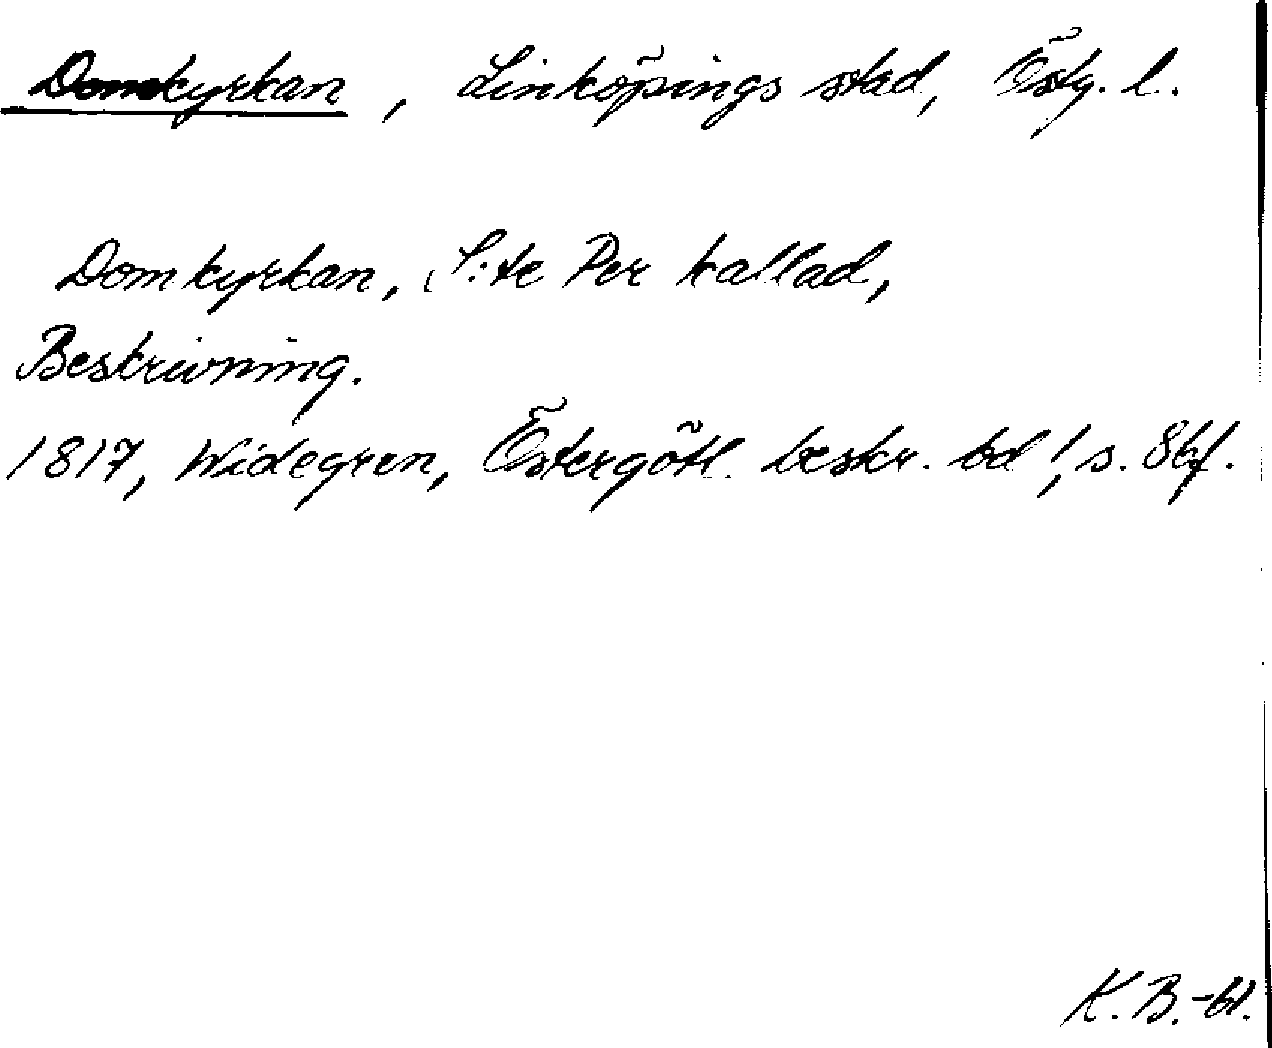 Domkyrkan, Linköpings stad, Östg. l.
Domkyrkan, S:te Per kallad,
Beskrivning.
1817, Widegren, Östergötl. beskr. bd 1, s. 86f.
K.B.-61.